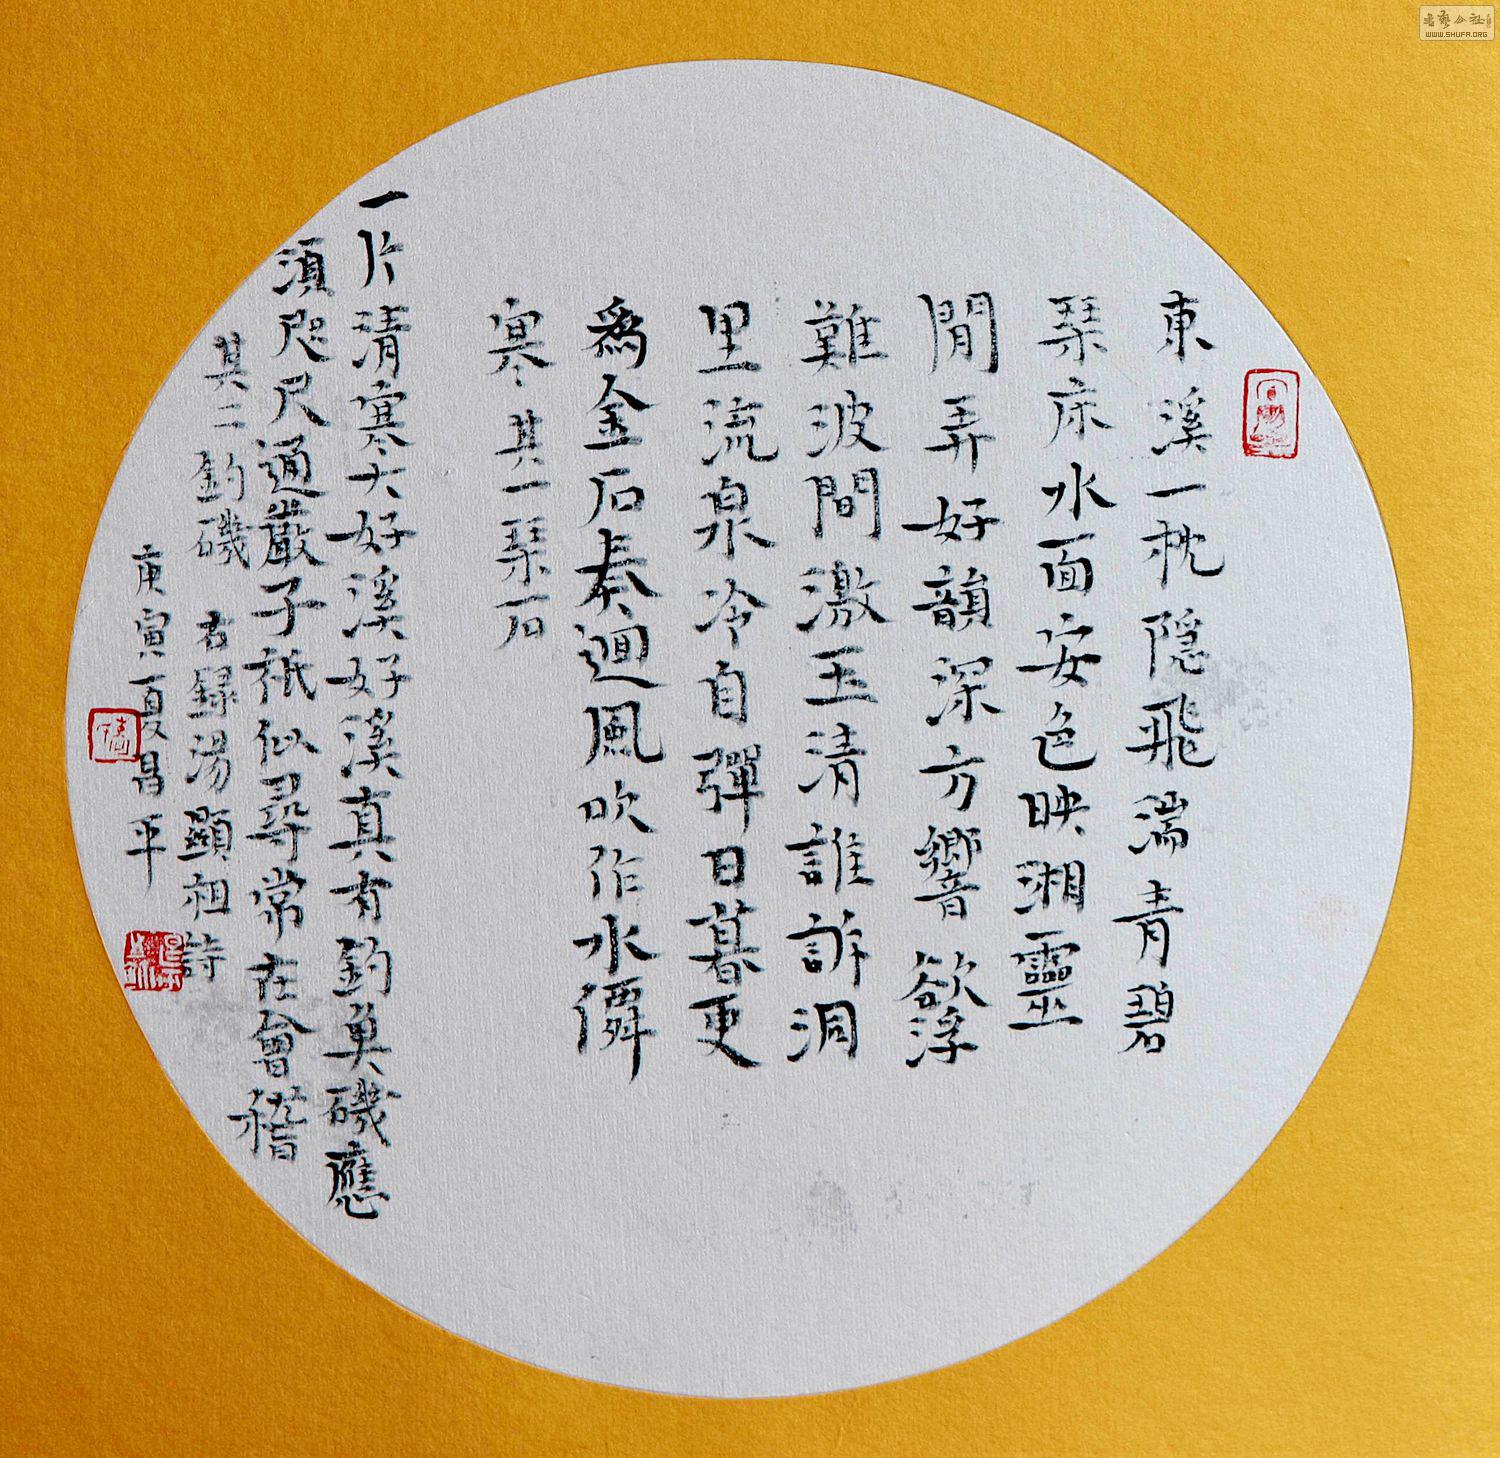 東溪一枕隱飛湍青碧
琹床水面安色映湘靈
閒弄好韻深方響欲浮
難波間激玉清誰訴洞
里流泉冷自彈日暮更
為金石奏迴風吹作水僊
寒 其一 琹石
一片清寒大好溪好溪真有釣奠磯應
須咫尺通嚴子祇似尋常在會稽
其二 釣磯 右録湯顯祖詩
庚寅夏昌平
書藝公社
WWW.SHUFA.ORG